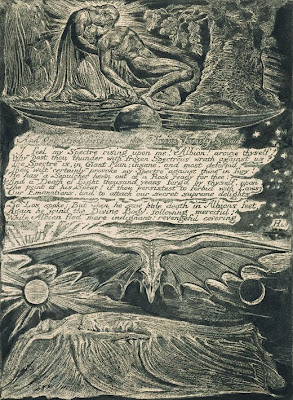 And One stood forth from the Divine Family & said
I feel my Spectre rising upon me! Albion! arouze thyself!
Why dost thou thunder with frozen Spectrous wrath against us?
The Spectre is, in Giant Man; insane, and most deform'd.
Thou wilt certainly provoke my Spectre against thine in fury!
He has a Sepulcher hewn out of a Rock ready for thee:
And a Death of Eight thousand years forg'd by thyself, upon
The point of his Spear! if thou persistest to forbid with Laws
Our Emanations, and to attack our secret supreme delights
So Los spoke: But when he saw pale death in Albions feet,
Again he join'd the Divine Body, following merciful;
While Albion fled more indignant! revengeful covering
His